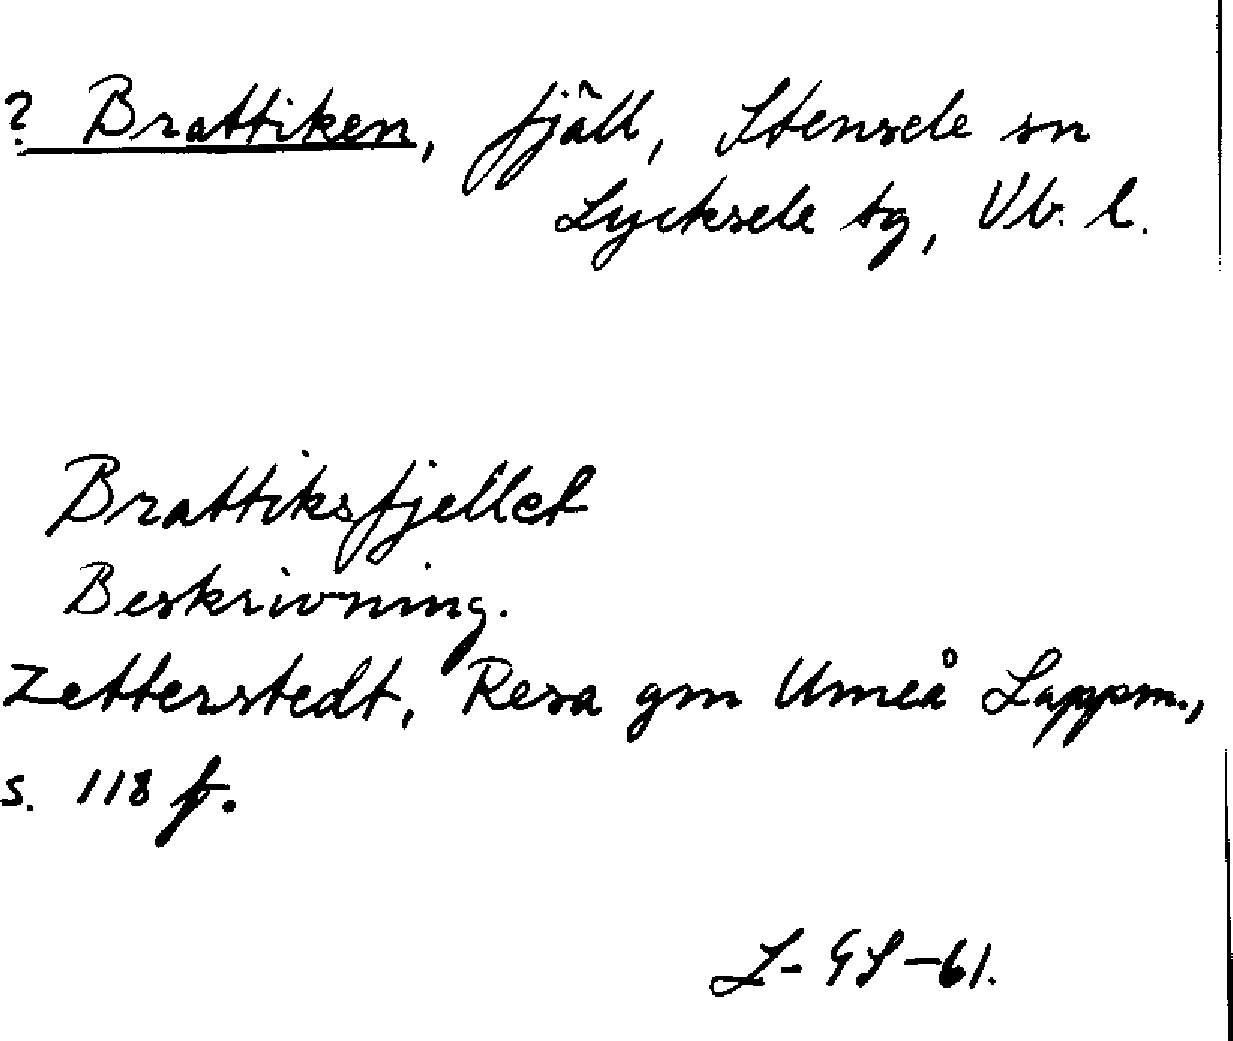 ? Brattiken, fjäll, Stensele sn
Lycksele tg, Vb. l.
Brattiksfjellet
Beskrivning.
Zetterstedt, Resa gm Umeå Lappm.,
s. 118 f.
L-GS-61.